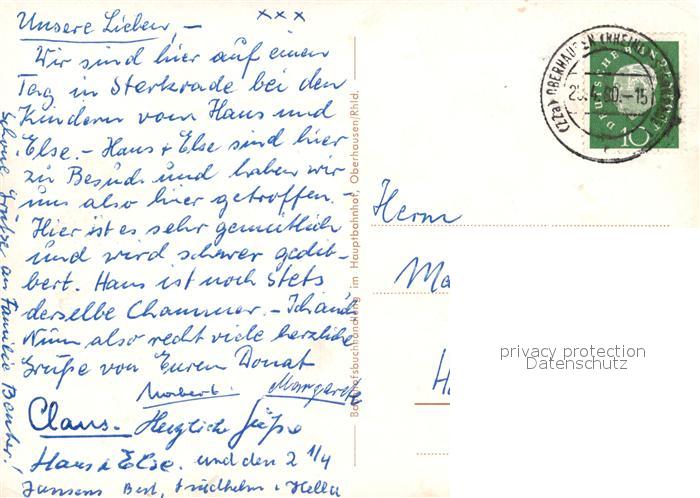 xxx
Unsere Lieben, –
Wir sind hier auf einen
Tag in Sterkrade bei den
Kindern von Hans und
Else. – Hans & Else sind hier
zu Besuch und haben wir
uns also hier getroffen. –
Hier ist es sehr gemütlich
und wird schwer gedib-
bert. Hans ist noch stets
derselbe Charmeur. –
Nun also recht viele herzliche
Grüße von Euren Donat
Norbert. Margarete
Claus. Herzliche Grüße
Hans & Else. und den 2 1/4
Jansens Bert, Friedhelm & Hella
Schöne Grüße an Familie
Bahnhofsbuchhandlung im Hauptbahnhof, Oberhausen/Rhld.
(22a) OBERHAUSEN (RHEINL)
60.-15
DEUTSCHE BUNDESPOST
10
Herrn
Ma
H
privacy protection
Datenschutz